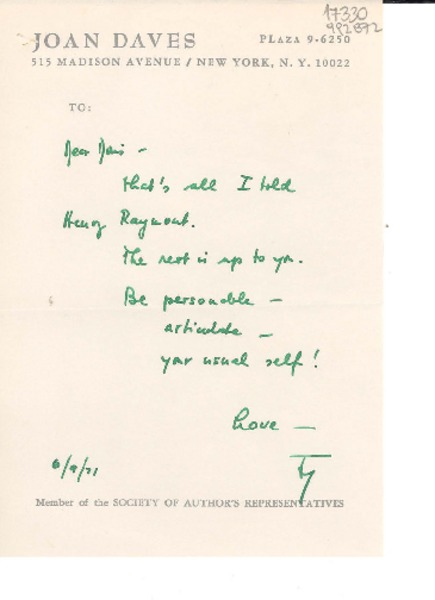 17330
992872
JOAN DAVES PLAZA 9-6250
515 MADISON AVENUE / NEW YORK, N. Y. 10022
TO:
Dear Doris –
that's all I told
Henry Raymont.
The rest is up to you.
Be personable –
articulate –
your usual self!
Love –
6/9/71
Member of the SOCIETY OF AUTHOR'S REPRESENTATIVES